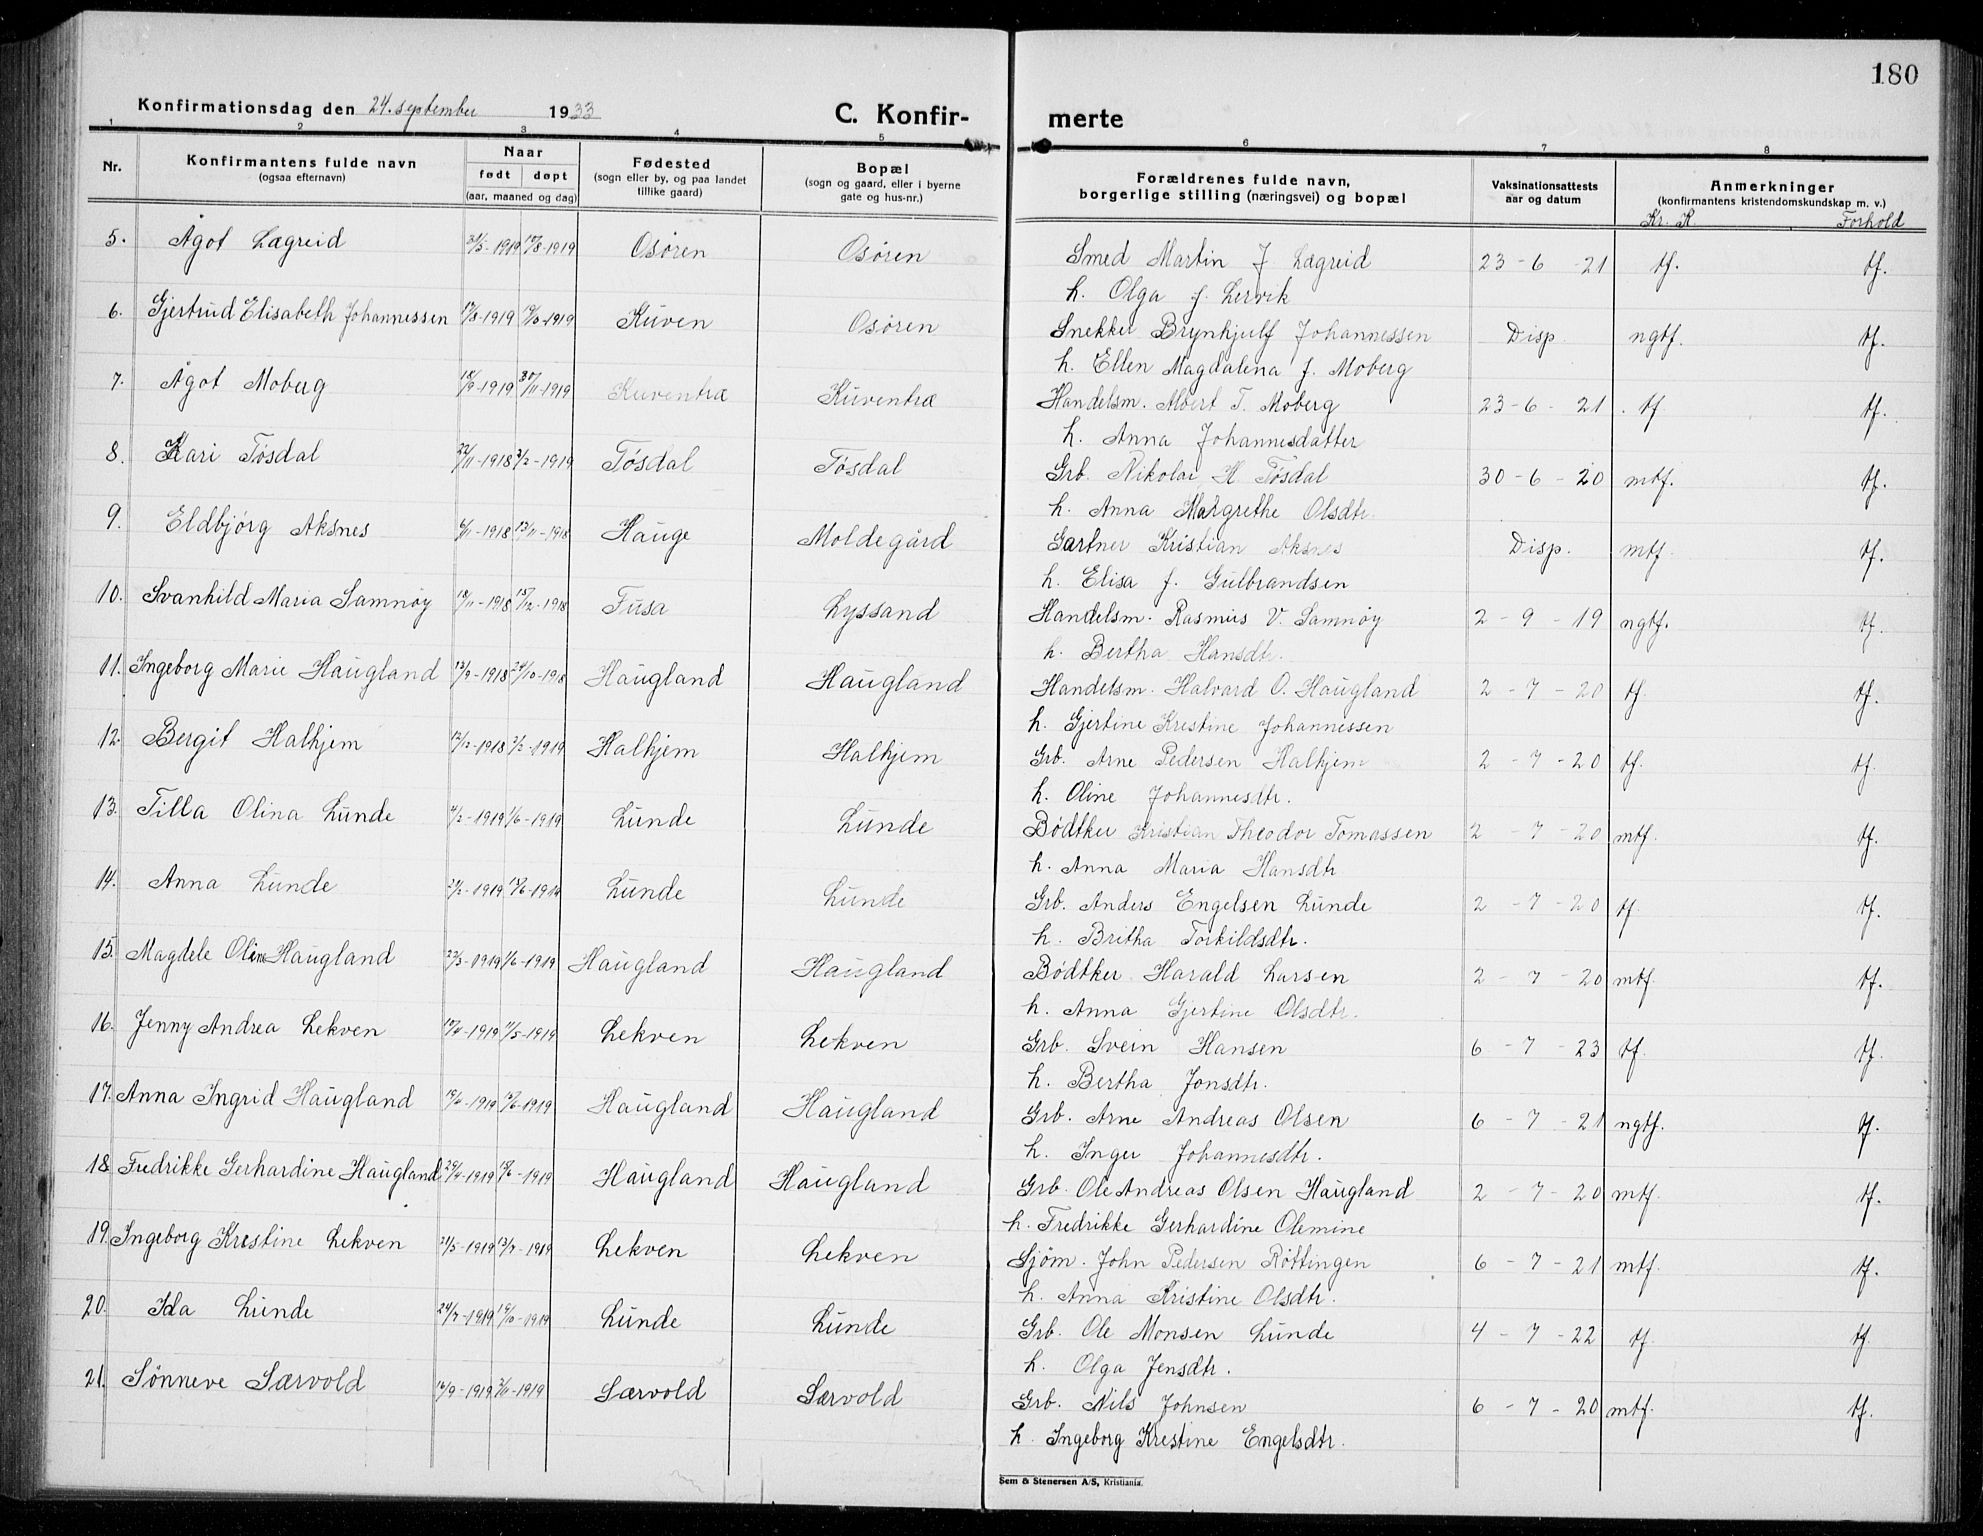 180
Konfirmationsdag den 24. september 1933
C. Konfir-
merte
1 2 3 4 5 6 7 8
Nr.
Konfirmantens fulde navn
(ogsaa efternavn)
Naar
født døpt
(aar, maaned og dag)
Fødested
(sogn eller by, og paa landet
tillike gaard)
Bopæl
(sogn og gaard, eller i byerne
gate og hus-nr.)
Forældrenes fulde navn,
borgerlige stilling (næringsvei) og bopæl
Vaksinationsattests
aar og datum
Anmerkninger
(konfirmantens kristendomskundskap m. v.)
Kr. K. Forhold
5. Ågot Lægreid 31/5-1919 17/8-1919 Osøren Osøren Smed Martin J Lægreid 23-6-21 tf. tf.
h. Olga f. Lervik
6. Gjertrud Elisabeth Johannessen Kuven Osøren Snekker Brynhjulf Johannessen Disp. ngtf. tf.
h. Ellen Magdalena f. Moberg
7. Ågot Moberg 18/9-1919 30/11-1919 Kuventræ Kuventræ Handelsm. Albert T. Moberg 23-6-21. tf tf.
h. Anna Johannesdatter
8. Kari Tøsdal 22/11-1918 2/2-1919 Tøsdal Tøsdal Grb. Nikolai H Tøsdal 30-6-20 mtf. tf.
h. Anna Margrethe Olsdtr.
9. Eldbjørg Aksnes 6/11-1918 13/11-1918 Hauge Moldegård Gartner Kristian Aksnes Disp. mtf. tf.
h. Elisa f. Gulbrandsen
10. Svanhild Maria Samnøy 18/11-1918 15/12-1918 Fusa Lyssand Handelsm. Rasmus V. Samnøy 2-9-19 ngtf. tf.
h. Bertha Hansdtr.
11. Ingeborg Marie Haugland 13/9-1918 24/10-1918 Haugland Haugland Handelsm. Halvard O. Haugland 2-7-20 tf. tf.
h. Gjertine Krestine Johannessen
12. Bergit Halhjem 12/12-1918 2/2-1919 Halhjem Halhjem Grb. Arne Pedersen Halhjem 2-7-20 tf. tf.
h. Oline Johannesdtr.
13. Tilla Olina Lunde 4/2-1919 1/6-1919 Lunde Lunde Bødtker Kristian Theodor Tomassen 2-7-20 mtf. tf.
h. Anna Maria Hansdtr
14. Anna Lunde Lunde Lunde Grb. Anders Engelsen Lunde 2-7-20 tf. tf.
h. Britha Torkildsdtr.
15. Magdele Oline Haugland 22/3-1919 1/6-1919 Haugland Haugland Bødtker Harald Larsen 2-7-20 mtf. tf.
h. Anna Gjertine Olsdtr.
16. Jenny Andrea Lekven Lekven Lekven Grb. Svein Hansen 6-7-23 tf. tf.
h. Bertha Jonsdtr.
17. Anna Ingrid Haugland Haugland Haugland Grb. Arne Andreas Olsen 6-7-21 ngtf. tf.
h. Inger Johannesdtr.
18. Fredrikke Gerhardine Haugland 29/4-1919 Haugland Haugland Grb. Ole Andreas Olsen Haugland 2-7-20 mtf. tf.
h. Fredrikke Gerhardine Olemine
19. Ingeborg Krestine Lekven 21/5-1919 13/7-1919 Lekven Lekven Sjøm. John Pedersen Røttingen 6-7-21 mtf. tf.
h. Anna Kristine Olsdtr.
20. Ida Lunde 24/7-1919 19/10-1919 Lunde Lunde Grb. Ole Monsen Lunde 4-7-22 tf. tf
h. Olga Jensdtr.
21. Sønneve Særvold 2/11-1919 Særvold Særvold Grb. Nils Johnsen 6-7-20 mtf. tf.
h. Ingeborg Krestine Engelsdtr.
Sem & Stenersen A/S, Kristiania.